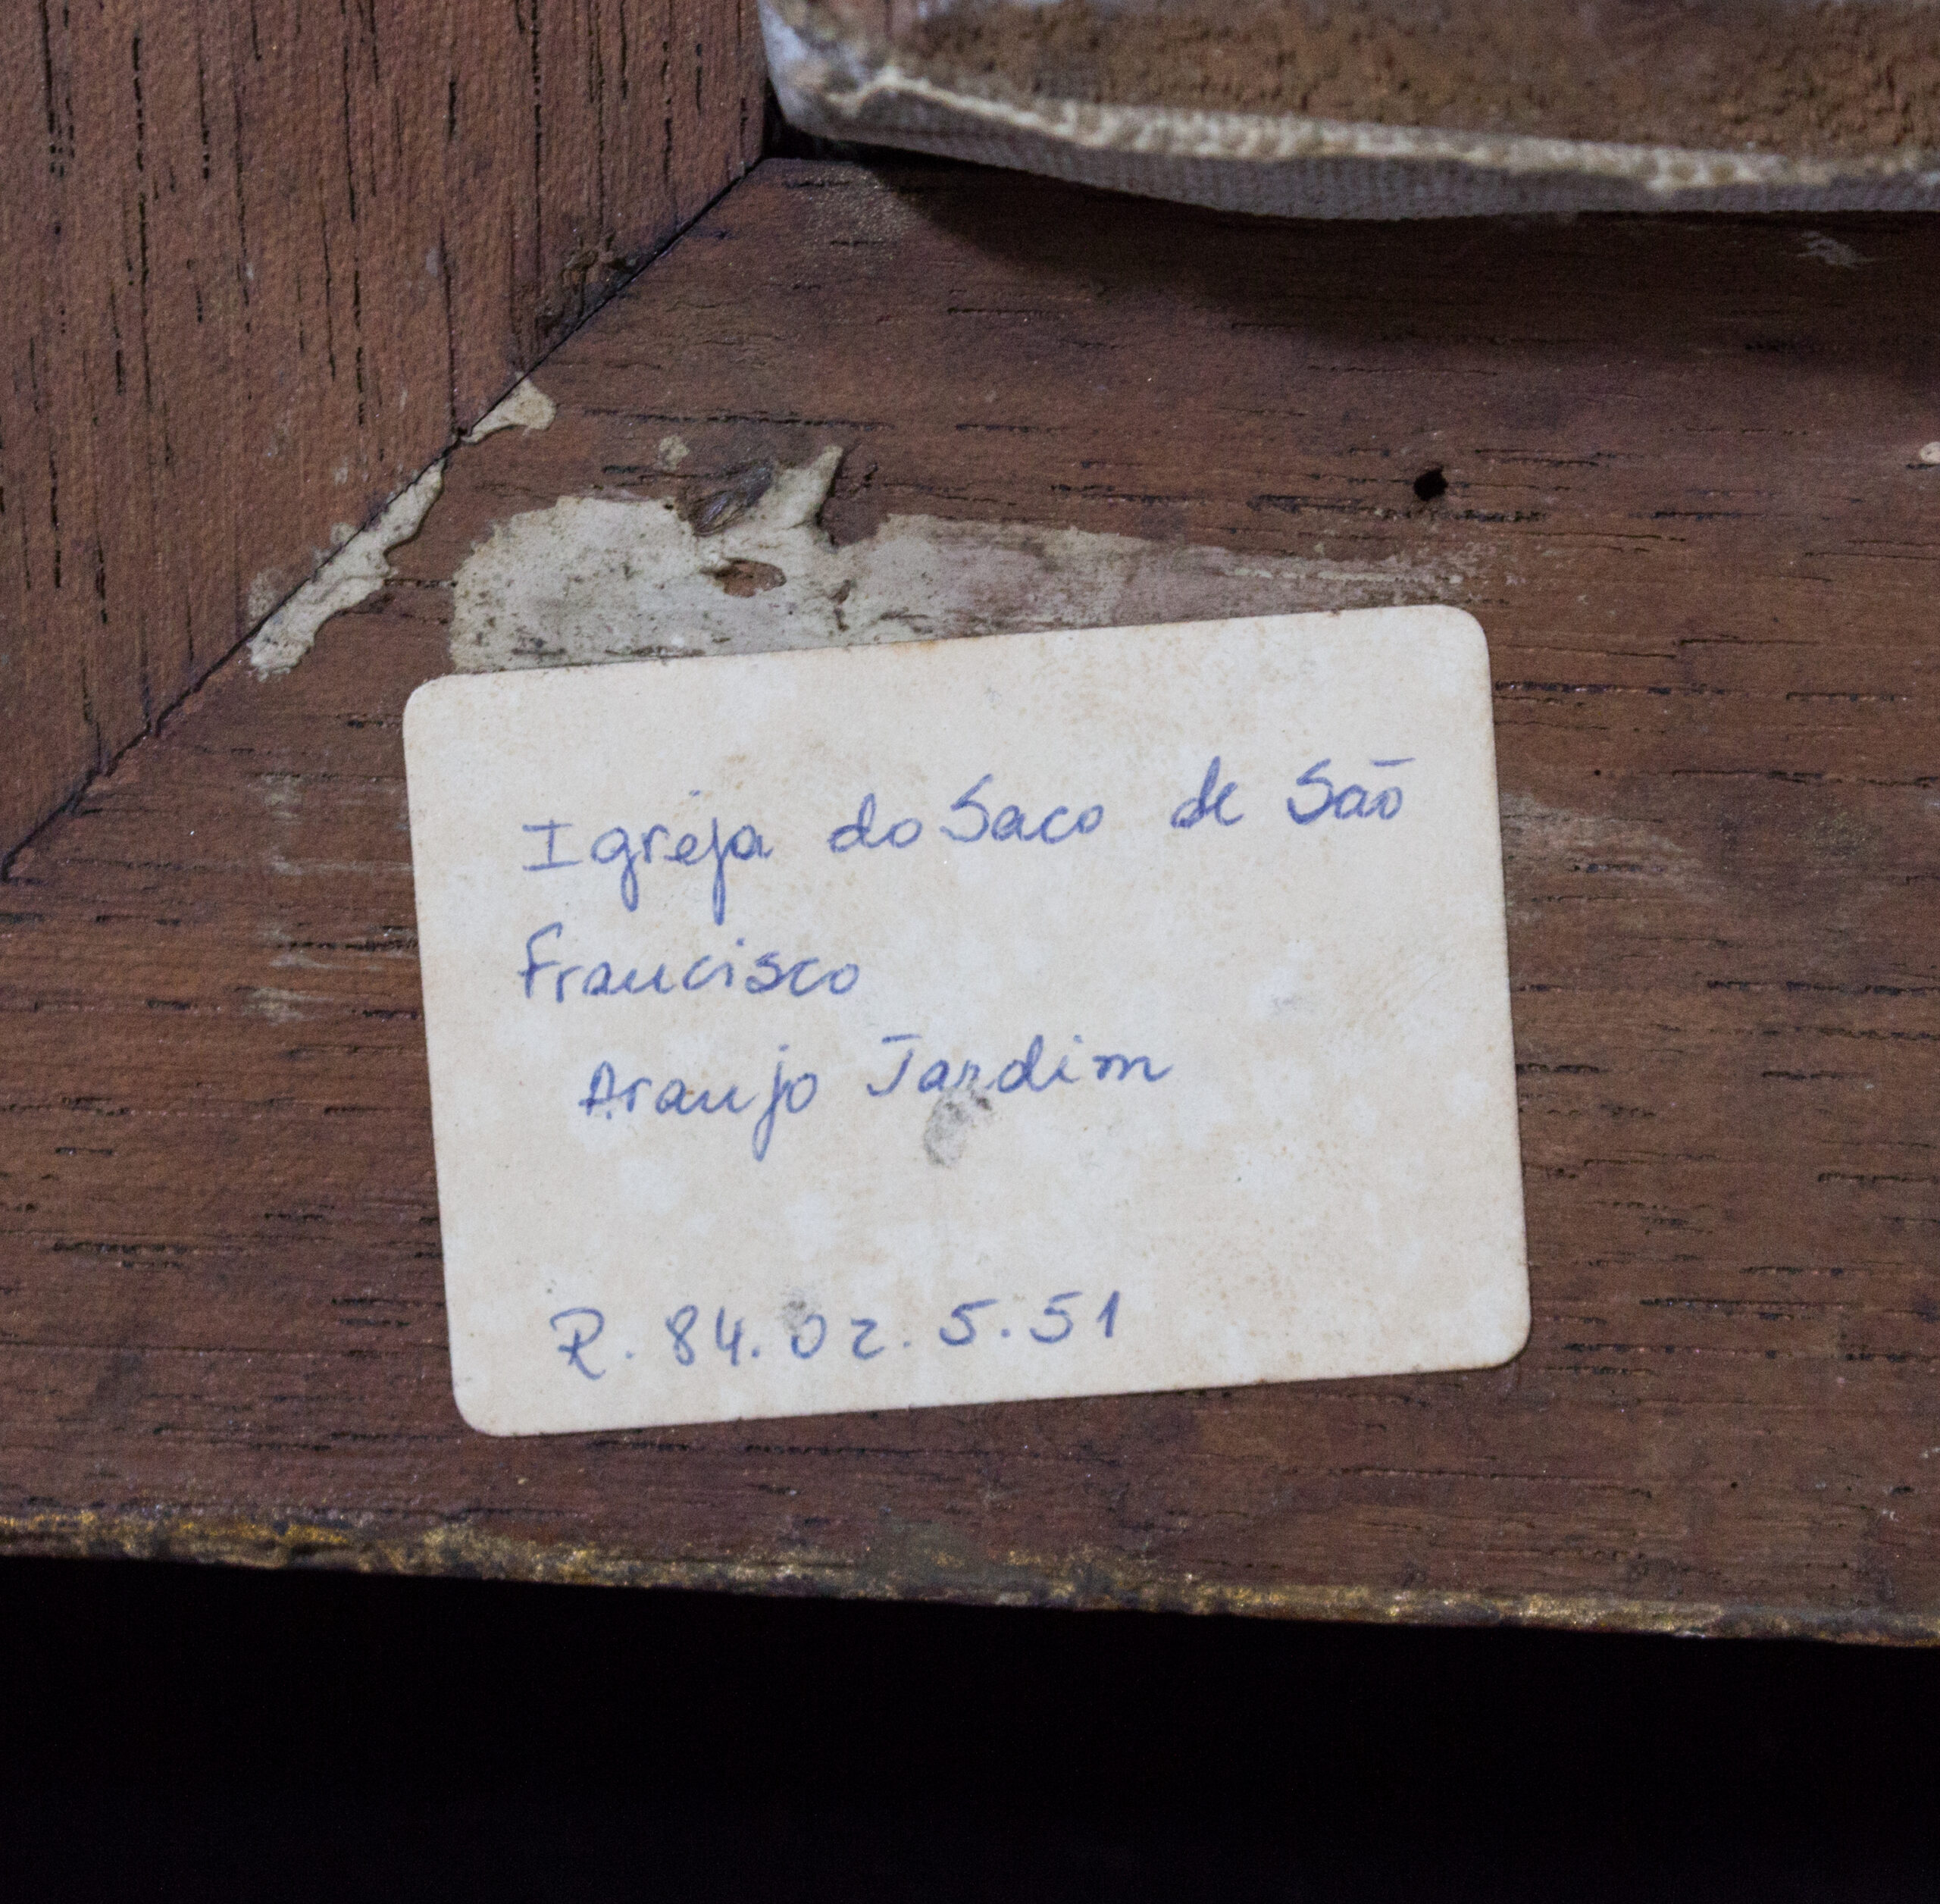 Igreja do Saco de São
Francisco
Araujo Jardim
R. 84.02.5.51